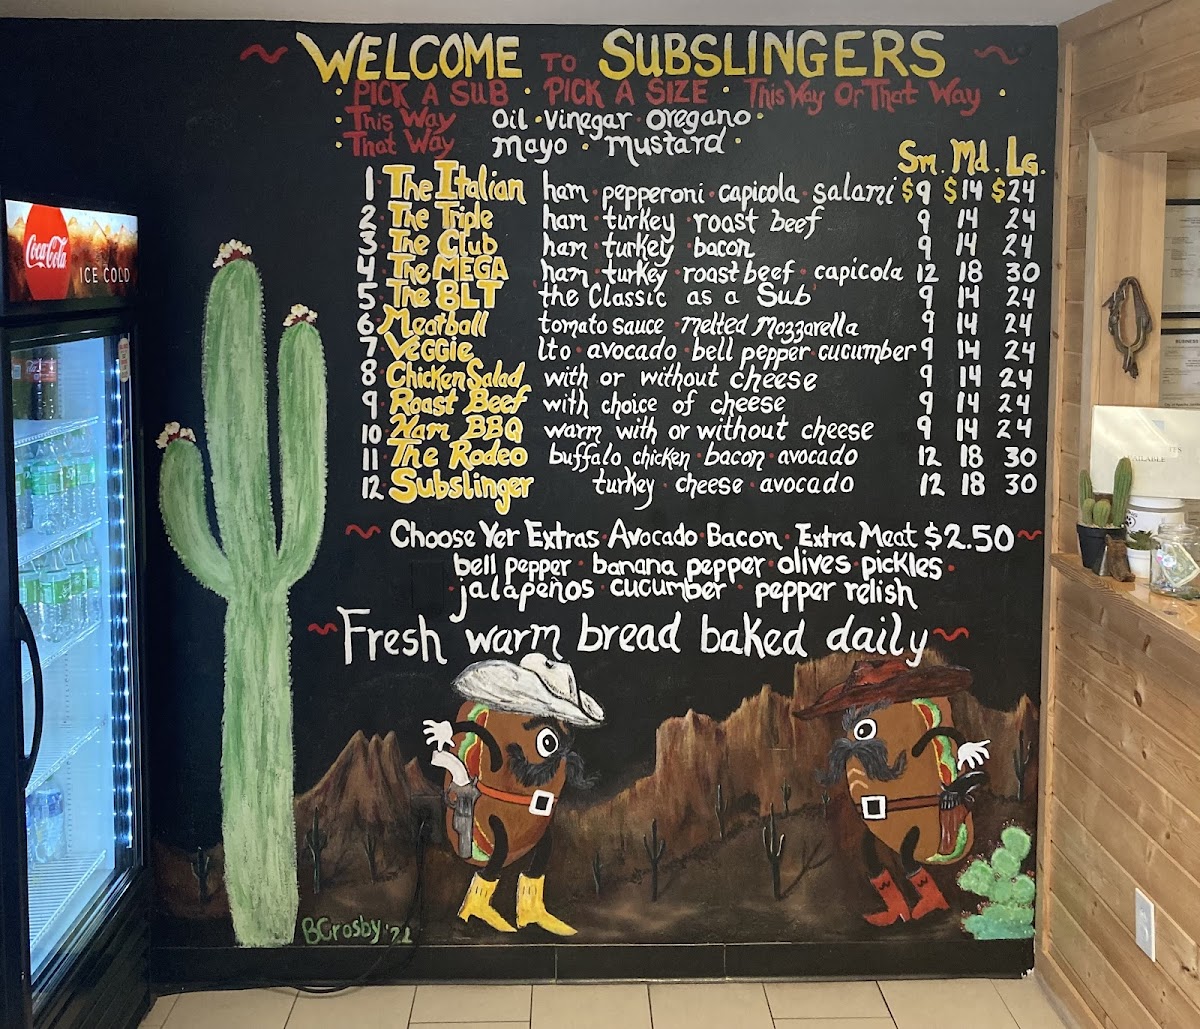 WELCOME TO SUBSLINGERS
• PICK A SUB • PICK A SIZE • This Way Or That Way •
• This Way Oil • Vinegar • Oregano •
• That Way Mayo • Mustard •
Sm. Md. Lg.
1 The Italian ham • pepperoni • capicola • salami $9 $14 $24
2 The Triple ham • turkey • roast beef 9 14 24
3 The Club ham • turkey • bacon 9 14 24
4 The MEGA ham • turkey • roast beef • capicola 12 18 30
5 The BLT the Classic as a Sub 9 14 24
6 Meatball tomato sauce • melted Mozzarella 9 14 24
7 Veggie lto • avocado • bell pepper • cucumber 9 14 24
8 Chicken Salad with or without cheese 9 14 24
9 Roast Beef with choice of cheese 9 14 24
10 Ham BBQ warm with or without cheese 9 14 24
11 The Rodeo buffalo chicken • bacon • avocado 12 18 30
12 Subslinger turkey • cheese • avocado 12 18 30
Choose Yer Extras • Avocado • Bacon • Extra Meat $2.50
bell pepper • banana pepper • olives • pickles •
• jalapeños • cucumber • pepper relish
Fresh warm bread baked daily
BCrosby '21
Coca-Cola
ICE COLD
BUSINESS